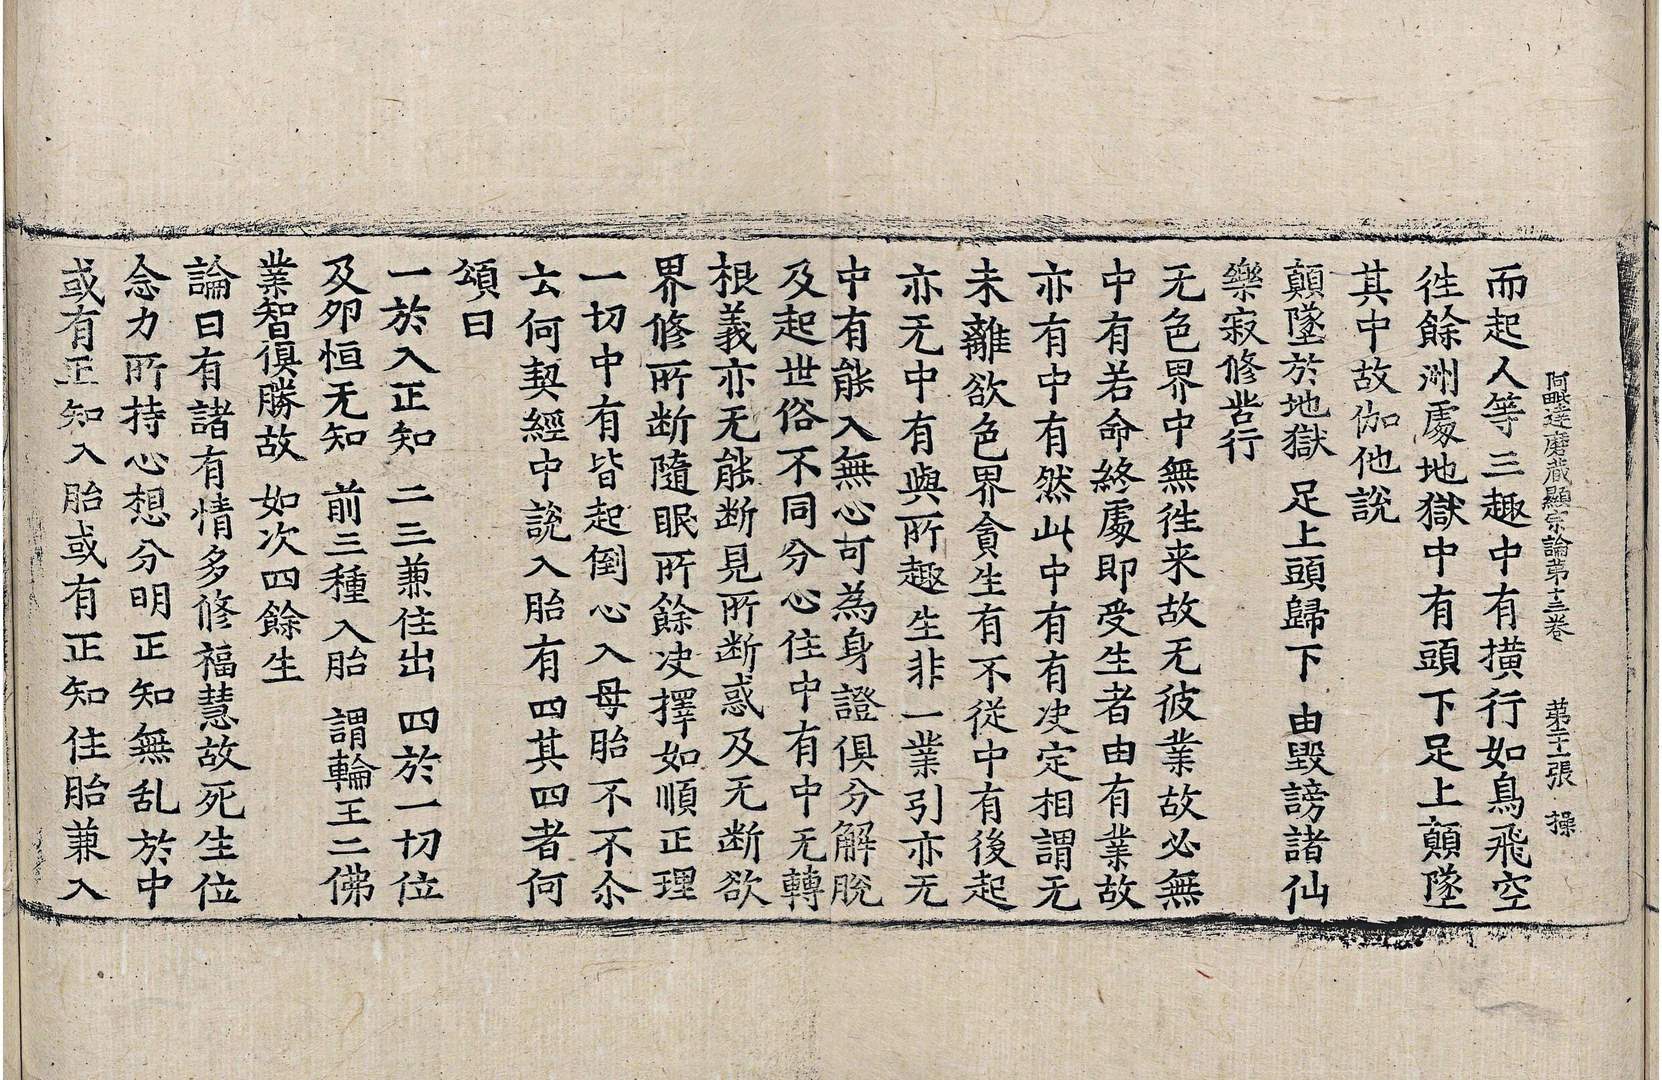 阿毗達磨蔵顯宗論第十三卷 第二十一張 操
而起人等三趣中有橫行如鳥飛空
徃餘洲處地獄中有頭下足上顛墜
其中故伽他說
顛墜於地獄 足上頭歸下 由毀謗諸仙
樂寂修苦行
无色界中無徃来故无彼業故必無
中有若命終處即受生者由有業故
亦有中有然此中有有决定相謂无
未離欲色界貪生有不從中有後起
亦无中有與所趣生非一業引亦无
中有能入無心可為身證俱分解脫
及起世俗不同分心住中有中无轉
根義亦无能断見所断惑及无断欲
界修所断隨眠所餘决擇如順正理
一切中有皆起倒心入母胎不不尒
云何契經中說入胎有四其四者何
頌曰
一於入正知 二三兼住出 四於一切位
及夘恒无知 前三種入胎 謂輪王二佛
業智俱勝故 如次四餘生
論曰有諸有情多修福慧故死生位
念力所持心想分明正知無乱於中
或有正知入胎或有正知住胎兼入